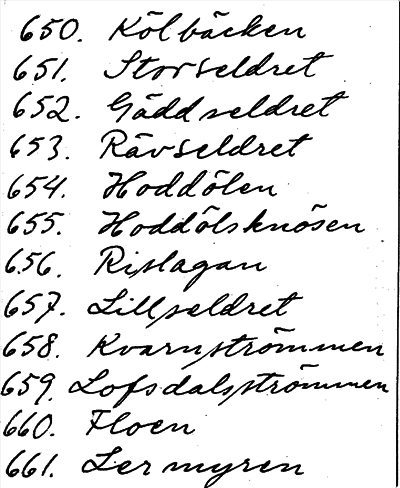 650. Kölbäcken
651. Storseldret
652. Gäddseldret
653. Rävseldret
654. Hoddölen
655. Hoddölsknösen
656. Rislagan
657. Lillseldret
658. Kvarnströmmen
659. Lofsdalsströmmen
660. Floen
661. Lermyren